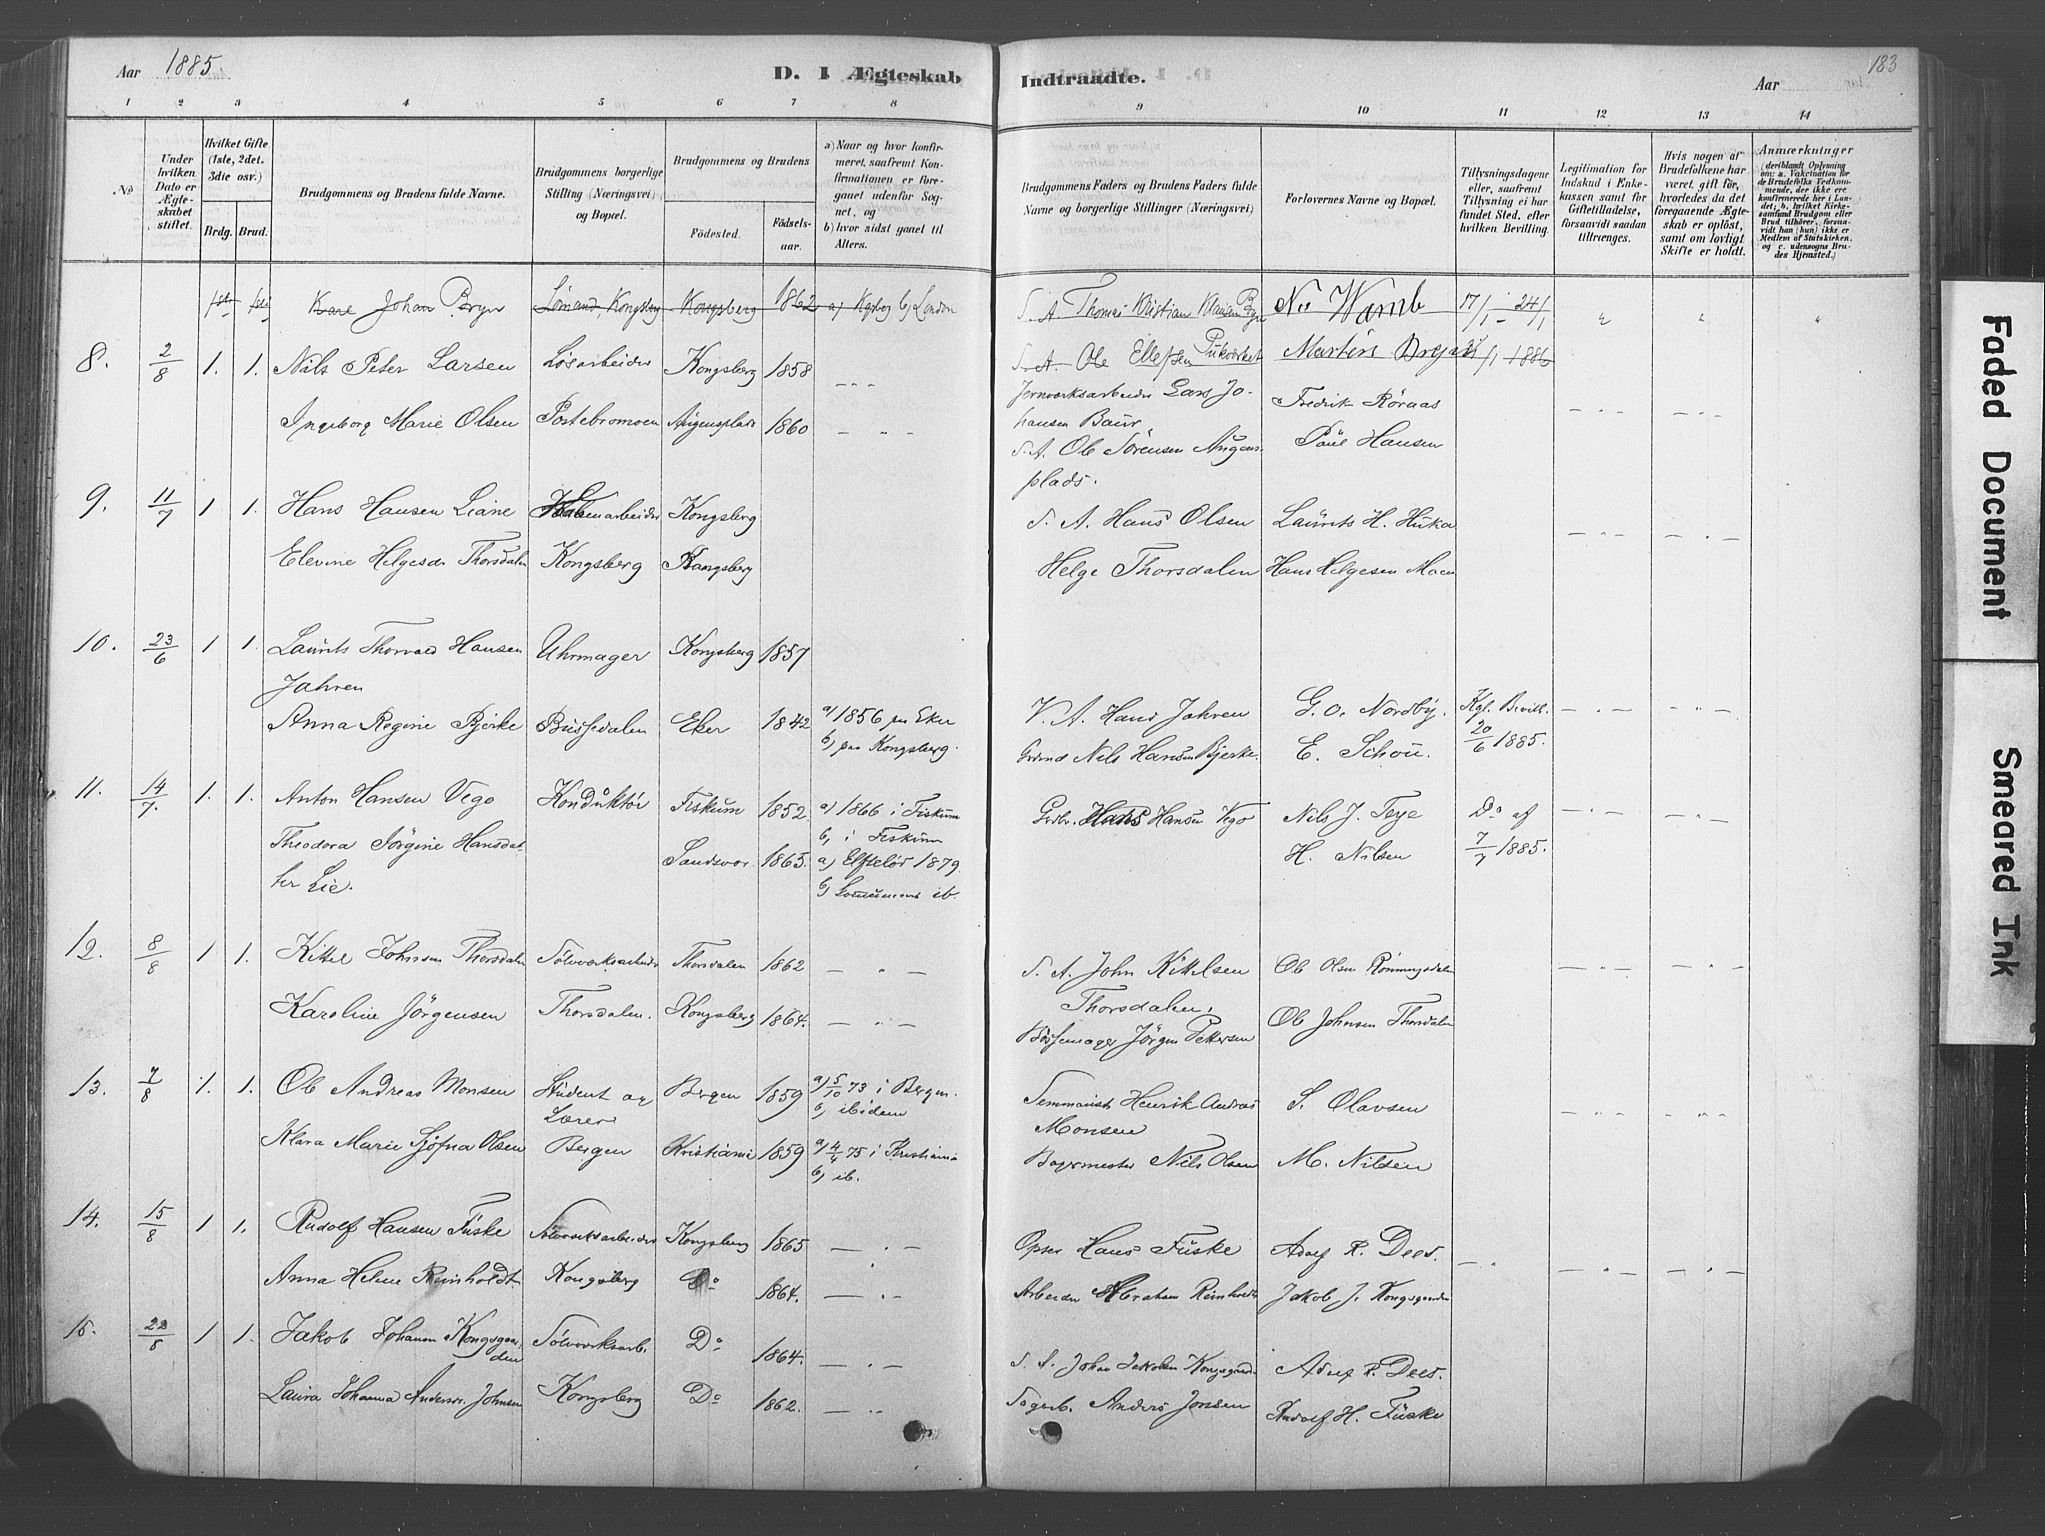 Aar 1885
D. I Ægteskab Indtraadte.
Aar
183
1 2 3 4 5 6 7 8 9 10 11 12 13 14
No
Under hvilken Dato er Ægteskabet stiftet.
Hvilket Gifte (1ste, 2det. 3die osv.)
Brdg. Brud.
Brudgommens og Brudens fulde Navne.
Brudgommens borgerlige Stilling (Næringsvei) og Bopæl.
Brudgommens og Brudens
Fødested.
Fødselsaar.
a) Naar og hvor konfirmeret, saafremt Konfirmationen er foregaaet udenfor Sognet, og
b) hvor sidst gaaet til Alters.
Brudgommens Faders og Brudens Faders fulde Navne og borgerlige Stillinger (Næringsvei)
Forlovernes Navne og Bopæl.
Tillysningsdagene eller, saafremt Tillysning ei har fundet Sted, efter hvilken Bevilling.
Legitimation for Indskud i Enkekassen samt for Giftetilladelse, forsaavidt saadan tiltrænges.
Hvis nogen af Brudefolkene har været gift før, hvorledes da det foregaaende Ægteskab er opløst, samt om lovligt Skifte er holdt.
Anmærkninger
(deriblandt Oplysning om: a. Vakcination for de Brudefolks Vedkommende, der ikke ere konfirmerede her i Landet; b. hvilket Kirkesamfund Brudgom eller Brud tilhører, forsaavidt han (hun) ikke er Medlem af Statskirken, og c. udensogns Brudes Hjemsted.)
Karl Johan Bryn Kongsberg 1862 London
S. A. Thomas Kristian Klausen Bryn
17/1 - 24/1
8. 2/8 1. 1. Nils Peter Larsen Løsarbeider Kongsberg 1858
S. A. Ole Ellefsen
1886
Jernværksarbeider Lars Johansen Baur
Fredrik Røraas
Ingeborg Marie Olsen Augensplads 1860
S. A. Ole Sørensen Augensplads.
Paul Hansen
9. 11/7 1 1. Hans Hansen Liane Kongsberg
S. A. Hans Olsen
Elevine Helgesdr Thorsdalen Kongsberg Kongsberg
Helge Thorsdalen
Hans Helgesen Moen
10. 23/6 1 1. Laurits Thorvald Hansen Jahren Uhrmager Kongsberg 1857
V. A. Hans Jahren
G. O. Nordby.
Kgl. Bevill. 20/6 1885.
Anna Regine Bjerke Bussedalen Eker 1842 a) 1856 paa Eker b) paa Kongsberg.
Nils Hansen Bjerke.
E. Schou.
11. 14/7. 1. 1. Anton Hansen Vego Konduktør Fiskum 1852. a) 1866 i Fiskum b) i Fiskum
Grdbr. Hans Hansen Vego
Nils J. Teye
Do af 7/7 1885.
Theodora Jørgine Hansdatter Lie. Sandsvær 1863. a) Efteløt 1879.
H. Nilsen
12. 8/8 1 1. Kittel Johnsen Thorsdalen Sølvværksarbeider Thorsdalen 1862
S. A. John Kittelsen Thorsdalen.
Ole Olsen Rønningsdalen
Karoline Jørgensen Thorsdalen. Kongsberg 1864.
Bøssemager Jørgen Pettersen
Ole Johnsen Thorsdalen
13. 7/8 1. 1. Ole Andreas Monsen Student og Lærer Bergen 1859 a) 5/10 73 i Bergen. b) ibidem
Seminarist Henrik Andreas Monsen
S. Olavsen
Klara Marie Sjøfna Olsen Bergen Kristiania 1859 a) 4/4 75 i Kristiania b) ib.
Nils Olsen
M. Nilsen
14. 15/8 1 1. Rudolf Hansen Fuske Sølvværksarbeider Kongsberg 1865
Hans Fuske
Adolf R. Dees.
Anna Helene Reinholdt Kongsberg Do 1864.
Arbeider Abraham Reinholdt
Jakob J. Kongsgaarden
15. 22/8 1 1. Jakob Johansen Kongsgaarden Sølvværksarb. Do 1864.
S. A. Johan Jakobsen Kongsgaard
Adolf R. Dees.
Laura Johanna Andersdr. Johnsen Kongsberg Do 1862.
Sagarb. Anders Jonsen
Rudolf H. Fuske
Faded Document
Smeared Ink